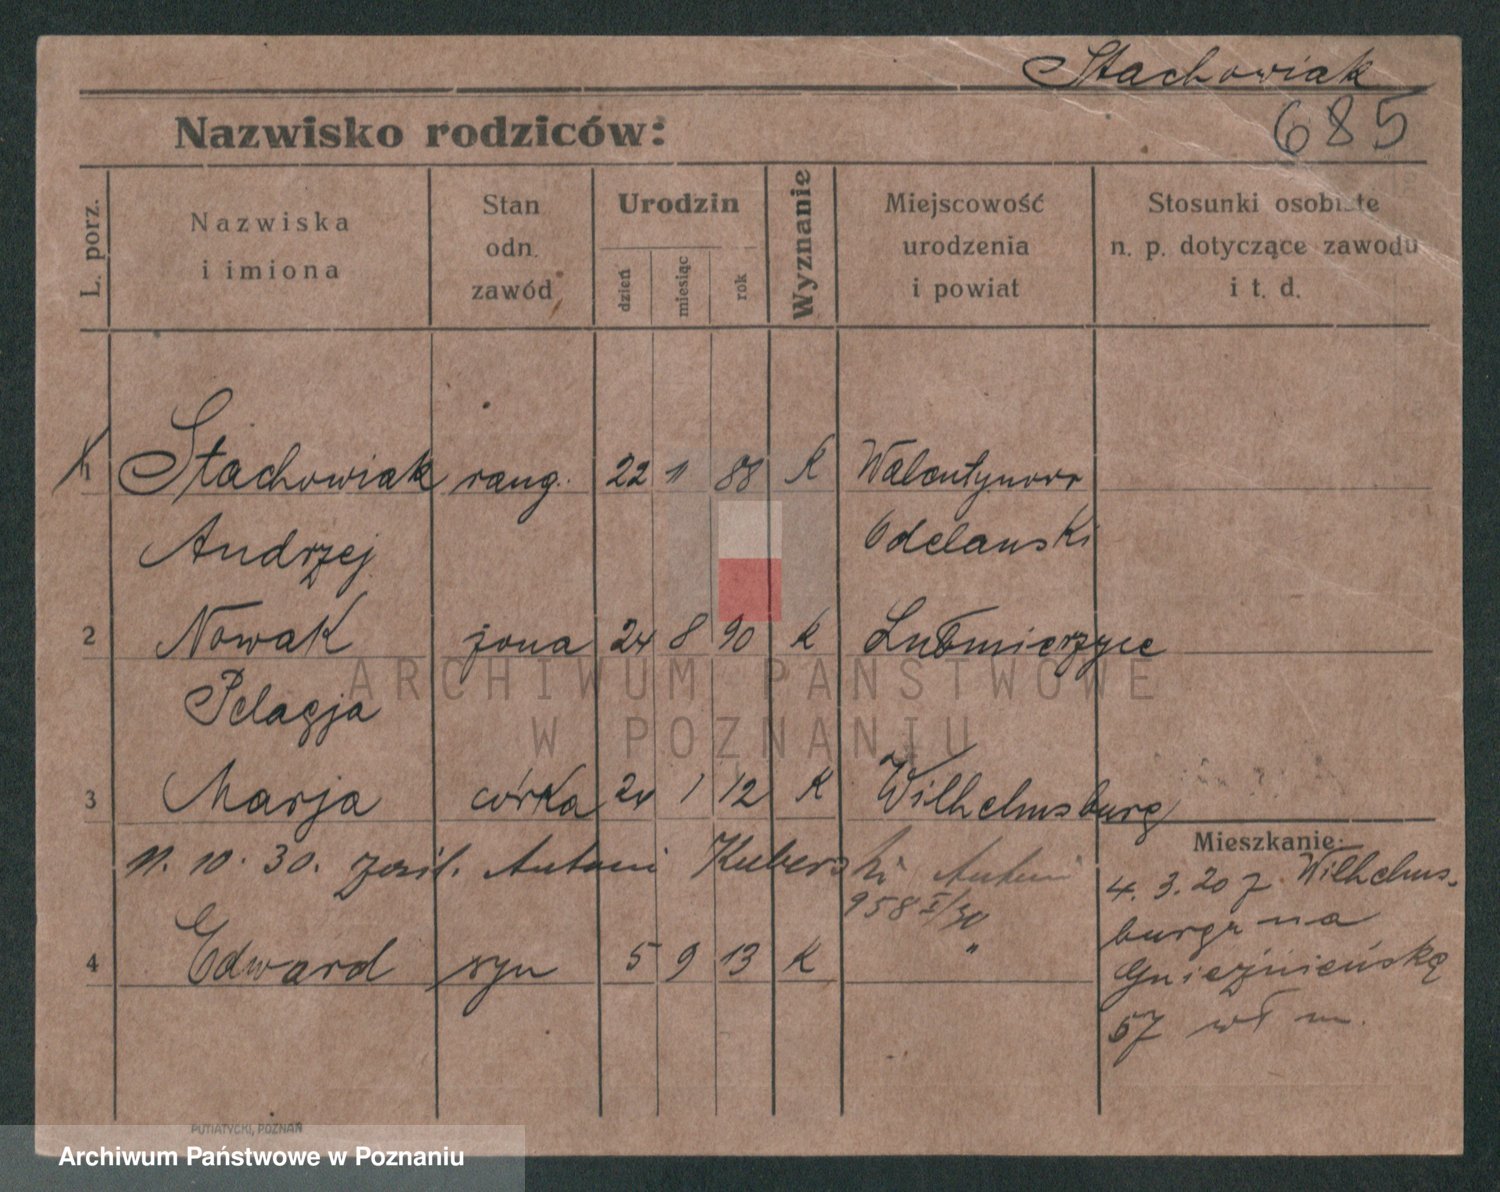 Stachowiak
685
Nazwisko rodziców:
L. porz.
Nazwiska
i imiona
Stan
odn.
zawód
Urodzin
dzień
miesiąc
rok
Wyznanie
Miejscowość
urodzenia
i powiat
Stosunki osobiste
n. p. dotyczące zawodu
i t. d.
1 Stachowiak rang. 22 11 88 K Walentynowo
Andrzej Odelanski
2 Nowak żona 24 8 90 K Lubmierzyce
Pelagja
3 Marja córka 24 1 12 K Wilhelmsburg
11. 10. 30. zaśl. Antoni Kuberski Antoni
958 I/30
4 Edward syn 5 9 13 K "
Mieszkanie:
4. 3. 20 z Wilhelms-
burga na
Gnieźnieńską
57 wł m.
ARCHIWUM PAŃSTWOWE
W POZNANIU
PUTIATYCKI, POZNAŃ
Archiwum Państwowe w Poznaniu